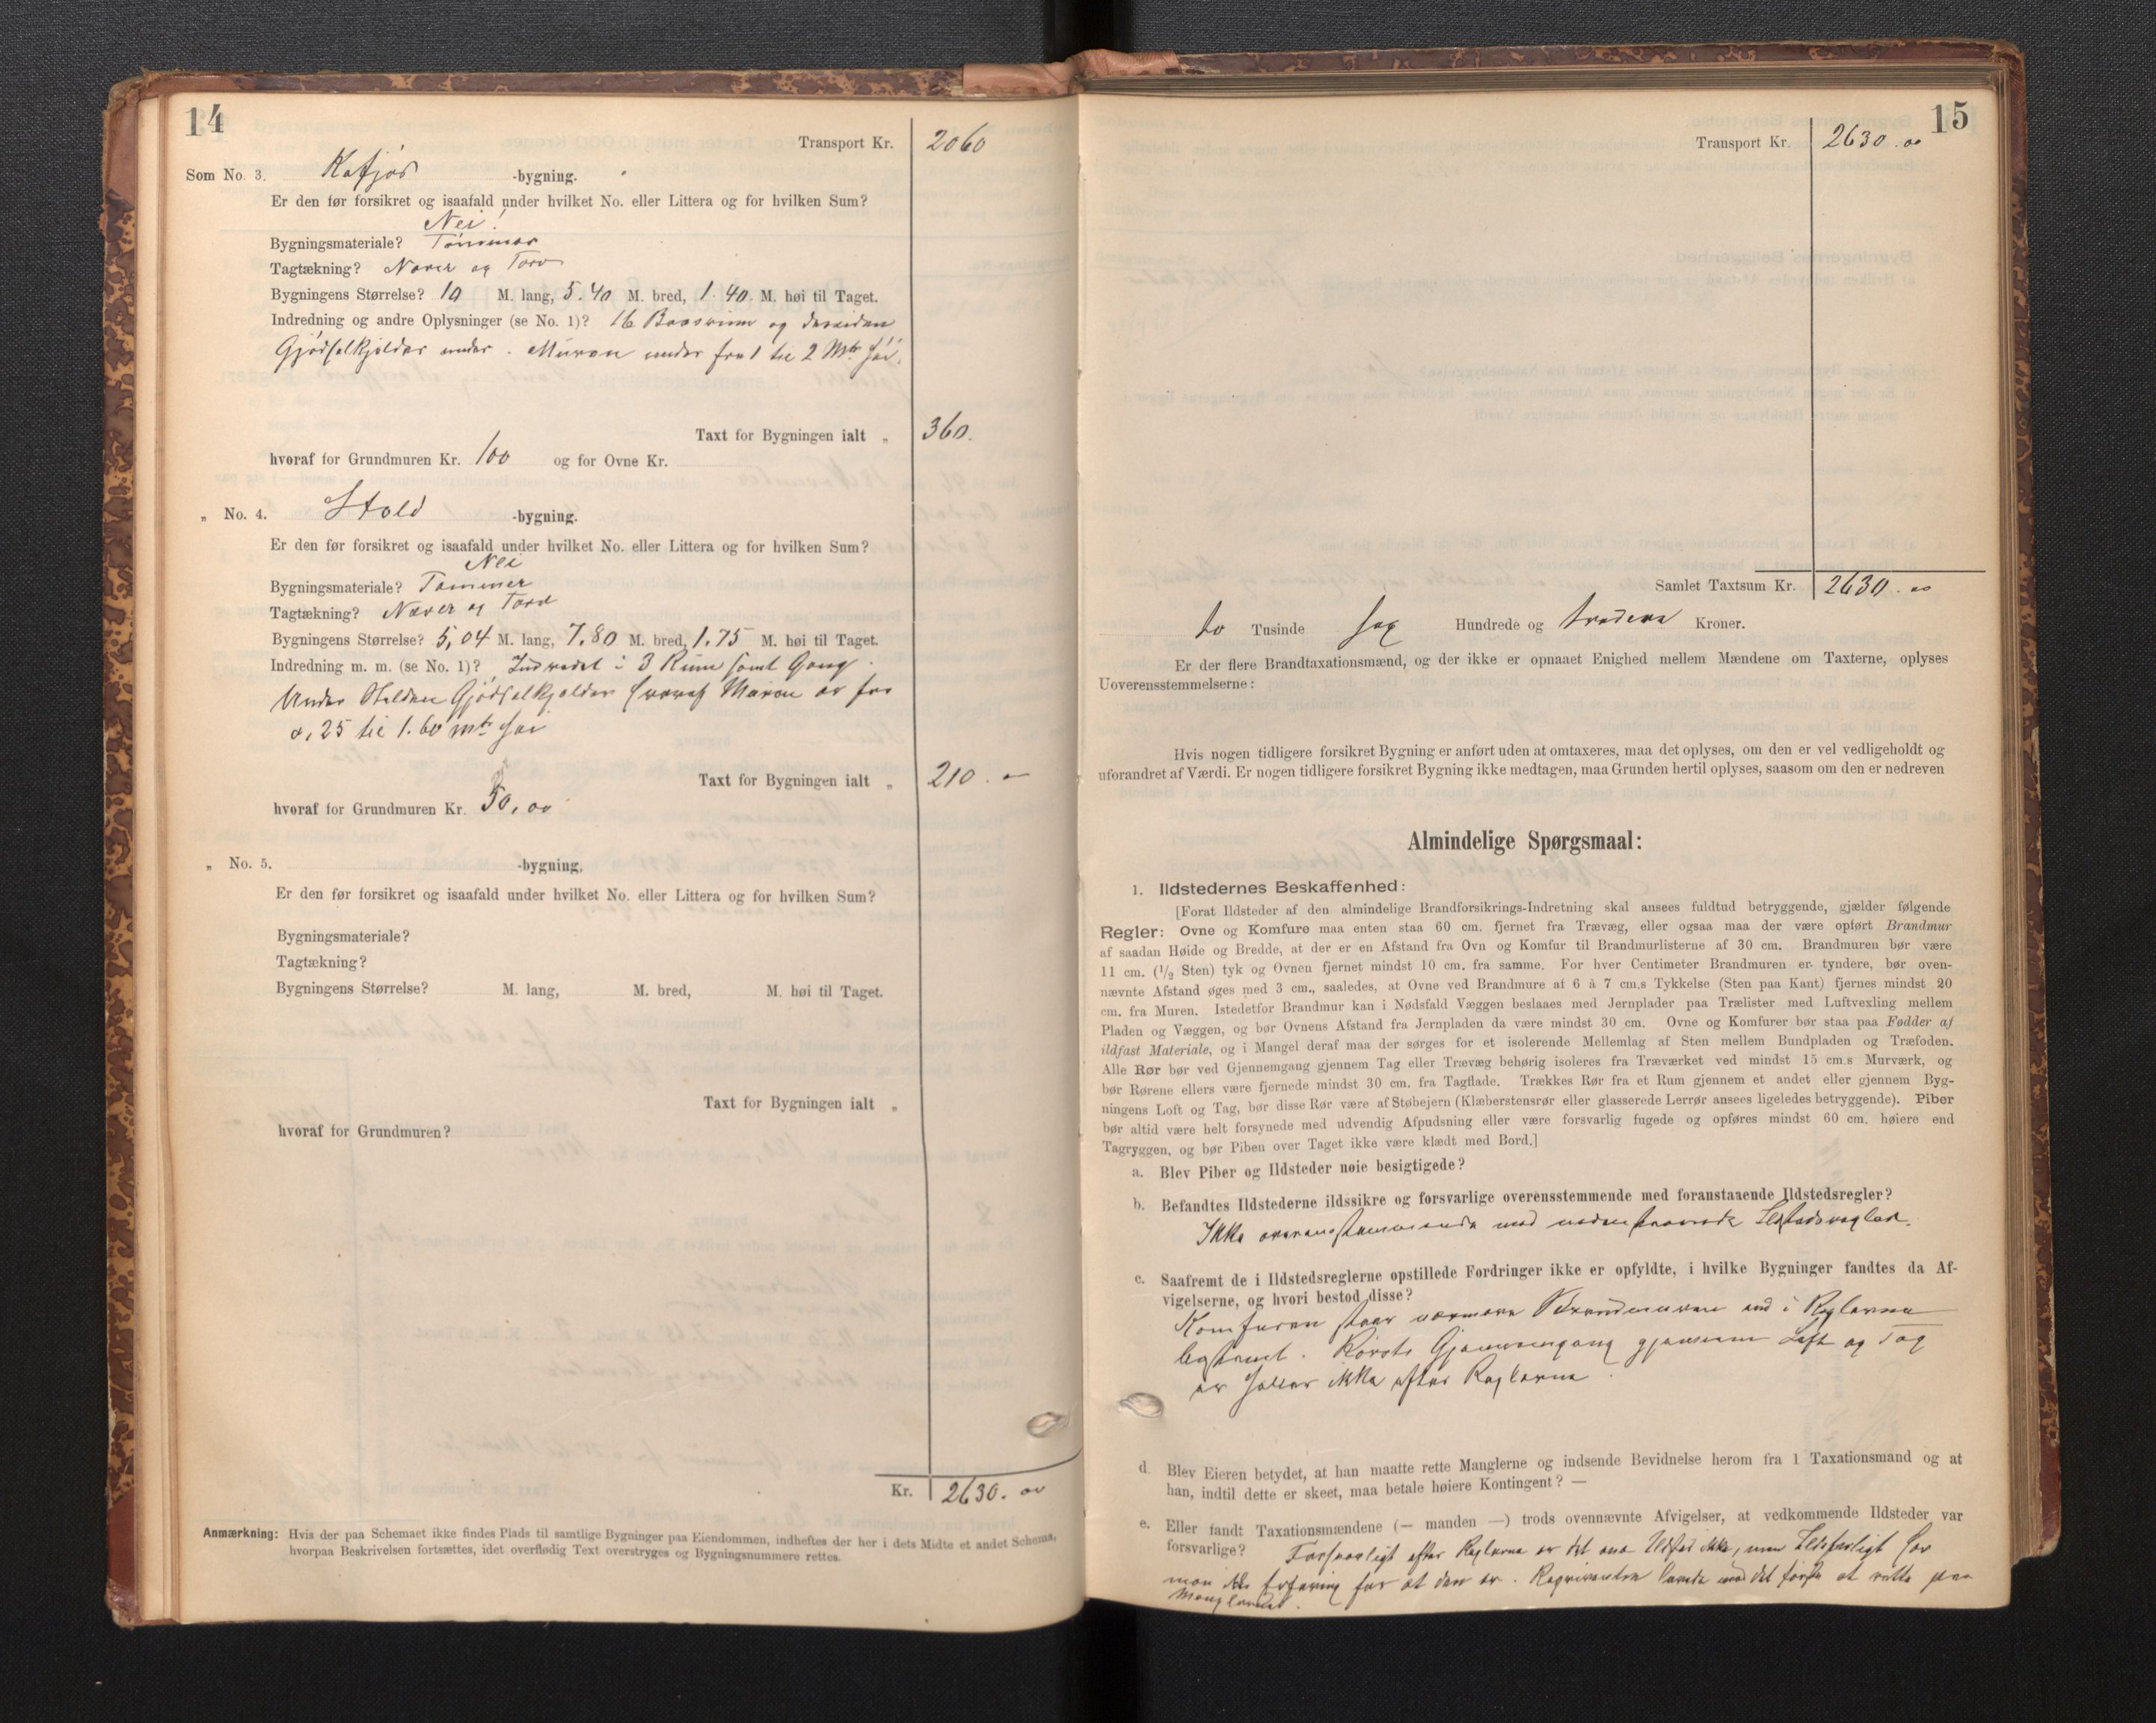 14
Transport Kr. 2060
Som No. 3. Kofjøs -bygning.
Er den før forsikret og isaafald under hvilket No. eller Littera og for hvilken Sum?
Nei!
Bygningsmateriale? Tømmer
Tagtækning? Næver og Torv
Bygningens Størrelse? 10 M. lang, 5.40 M. bred, 1.40 M. høi til Taget.
Indredning og andre Oplysninger (se No. 1)? 16 Baasrum og desuden
Gjødselkjelder under. Muren under fra 1 til 2 Mtr høi.
Taxt for Bygningen ialt „ 360.
hvoraf for Grundmuren Kr. 100 og for Ovne Kr.
„ No. 4. Stald -bygning.
Er den før forsikret og isaafald under hvilket No. eller Littera og for hvilken Sum?
Nei
Bygningsmateriale? Tømmer
Tagtækning? Næver og Torv
Bygningens Størrelse? 5,04 M. lang, 7.80 M. bred, 1.75 M. høi til Taget.
Indredning m. m. (se No. 1)? Indredet i 3 Rum samt Gang.
Under Stalden Gjødselkjelder hvoraf Muren er fra
0,25 til 1.60 mtr høi
Taxt for Bygningen ialt „ 210. –
hvoraf for Grundmuren Kr. 50,00
„ No. 5. -bygning.
Er den før forsikret og isaafald under hvilket No. eller Littera og for hvilken Sum?
Bygningsmateriale?
Tagtækning?
Bygningens Størrelse? M. lang, M. bred, M. høi til Taget.
Taxt for Bygningen ialt „
hvoraf for Grundmuren?
Kr. 2630.00
Anmærkning: Hvis der paa Schemaet ikke findes Plads til samtlige Bygninger paa Eiendommen, indheftes der her i dets Midte et andet Schema,
hvorpaa Beskrivelsen fortsættes, idet overflødig Text overstryges og Bygningsnummere rettes.
15
Transport Kr. 2630.00
Samlet Taxtsum Kr. 2630.00
to Tusinde sex Hundrede og tredeve Kroner.
Er der flere Brandtaxationsmænd, og der ikke er opnaaet Enighed mellem Mændene om Taxterne, oplyses
Uoverensstemmelserne:
Hvis nogen tidligere forsikret Bygning er anført uden at omtaxeres, maa det oplyses, om den er vel vedligeholdt og
uforandret af Værdi. Er nogen tidligere forsikret Bygning ikke medtagen, maa Grunden hertil oplyses, saasom om den er nedreven
Almindelige Spørgsmaal:
1. Ildstedernes Beskaffenhed:
[Forat Ildsteder af den almindelige Brandforsikrings-Indretning skal ansees fuldtud betryggende, gjælder følgende
Regler: Ovne og Komfure maa enten staa 60 cm. fjernet fra Trævæg, eller ogsaa maa der være opført Brandmur
af saadan Høide og Bredde, at der er en Afstand fra Ovn og Komfur til Brandmurlisterne af 30 cm. Brandmuren bør være
11 cm. (1/2 Sten) tyk og Ovnen fjernet mindst 10 cm. fra samme. For hver Centimeter Brandmuren er tyndere, bør oven-
nævnte Afstand øges med 3 cm., saaledes, at Ovne ved Brandmure af 6 à 7 cm.s Tykkelse (Sten paa Kant) fjernes mindst 20
cm. fra Muren. Istedetfor Brandmur kan i Nødsfald Væggen beslaaes med Jernplader paa Trælister med Luftvexling mellem
Pladen og Væggen, og bør Ovnens Afstand fra Jernpladen da være mindst 30 cm. Ovne og Komfurer bør staa paa Fødder af
ildfast Materiale, og i Mangel deraf maa der sørges for et isolerende Mellemlag af Sten mellem Bundpladen og Træfoden.
Alle Rør bør ved Gjennemgang gjennem Tag eller Trævæg behørig isoleres fra Træværket ved mindst 15 cm.s Murværk, og
bør Rørene ellers være fjernede mindst 30 cm. fra Tagflade. Trækkes Rør fra et Rum gjennem et andet eller gjennem Byg-
ningens Loft og Tag, bør disse Rør være af Støbejern (Klæberstensrør eller glasserede Lerrør ansees ligeledes betryggende). Piber
bør altid være helt forsynede med udvendig Afpudsning eller være forsvarlig fugede og opføres mindst 60 cm. høiere end
Tagryggen, og bør Piben over Taget ikke være klædt med Bord.]
a. Blev Piber og Ildsteder nøie besigtigede?
b. Befandtes Ildstederne ildssikre og forsvarlige overensstemmende med foranstaaende Ildstedsregler?
Ikke overensstemmende med Ildstedsregler.
c. Saafremt de i Ildstedsreglerne opstillede Fordringer ikke er opfyldte, i hvilke Bygninger fandtes da Af-
vigelserne, og hvori bestod disse?
Komfuren staar nærmere Brandmuren end i Reglerne
bestemt. Rørets Gjennemgang gjennem Loft og Tag
er heller ikke efter Reglerne.
d. Blev Eieren betydet, at han maatte rette Manglerne og indsende Bevidnelse herom fra 1 Taxationsmand og at
han, indtil dette er skeet, maa betale høiere Kontingent? —
e. Eller fandt Taxationsmændene (— manden —) trods ovennævnte Afvigelser, at vedkommende Ildsteder var
forsvarlige? Forsvarligt efter Reglerne er det ene Ildsted ikke, men Ildsfarligt har
man ikke Erfaring for at den er. Rekvirenten lovede med det første at rette paa
Manglerne.